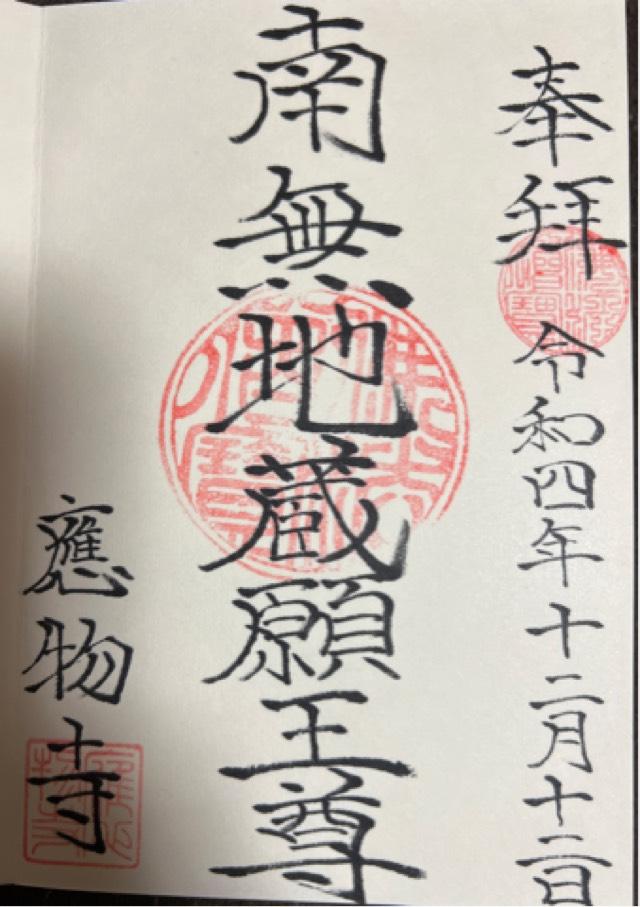 奉拝
令和四年十二月十二日
南無地蔵願王尊
應物寺